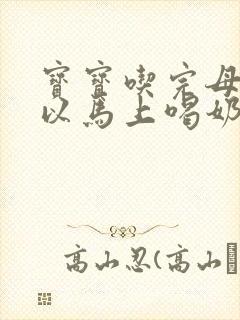 寶寶喫完母
以馬上喝奶
高山忍(高山